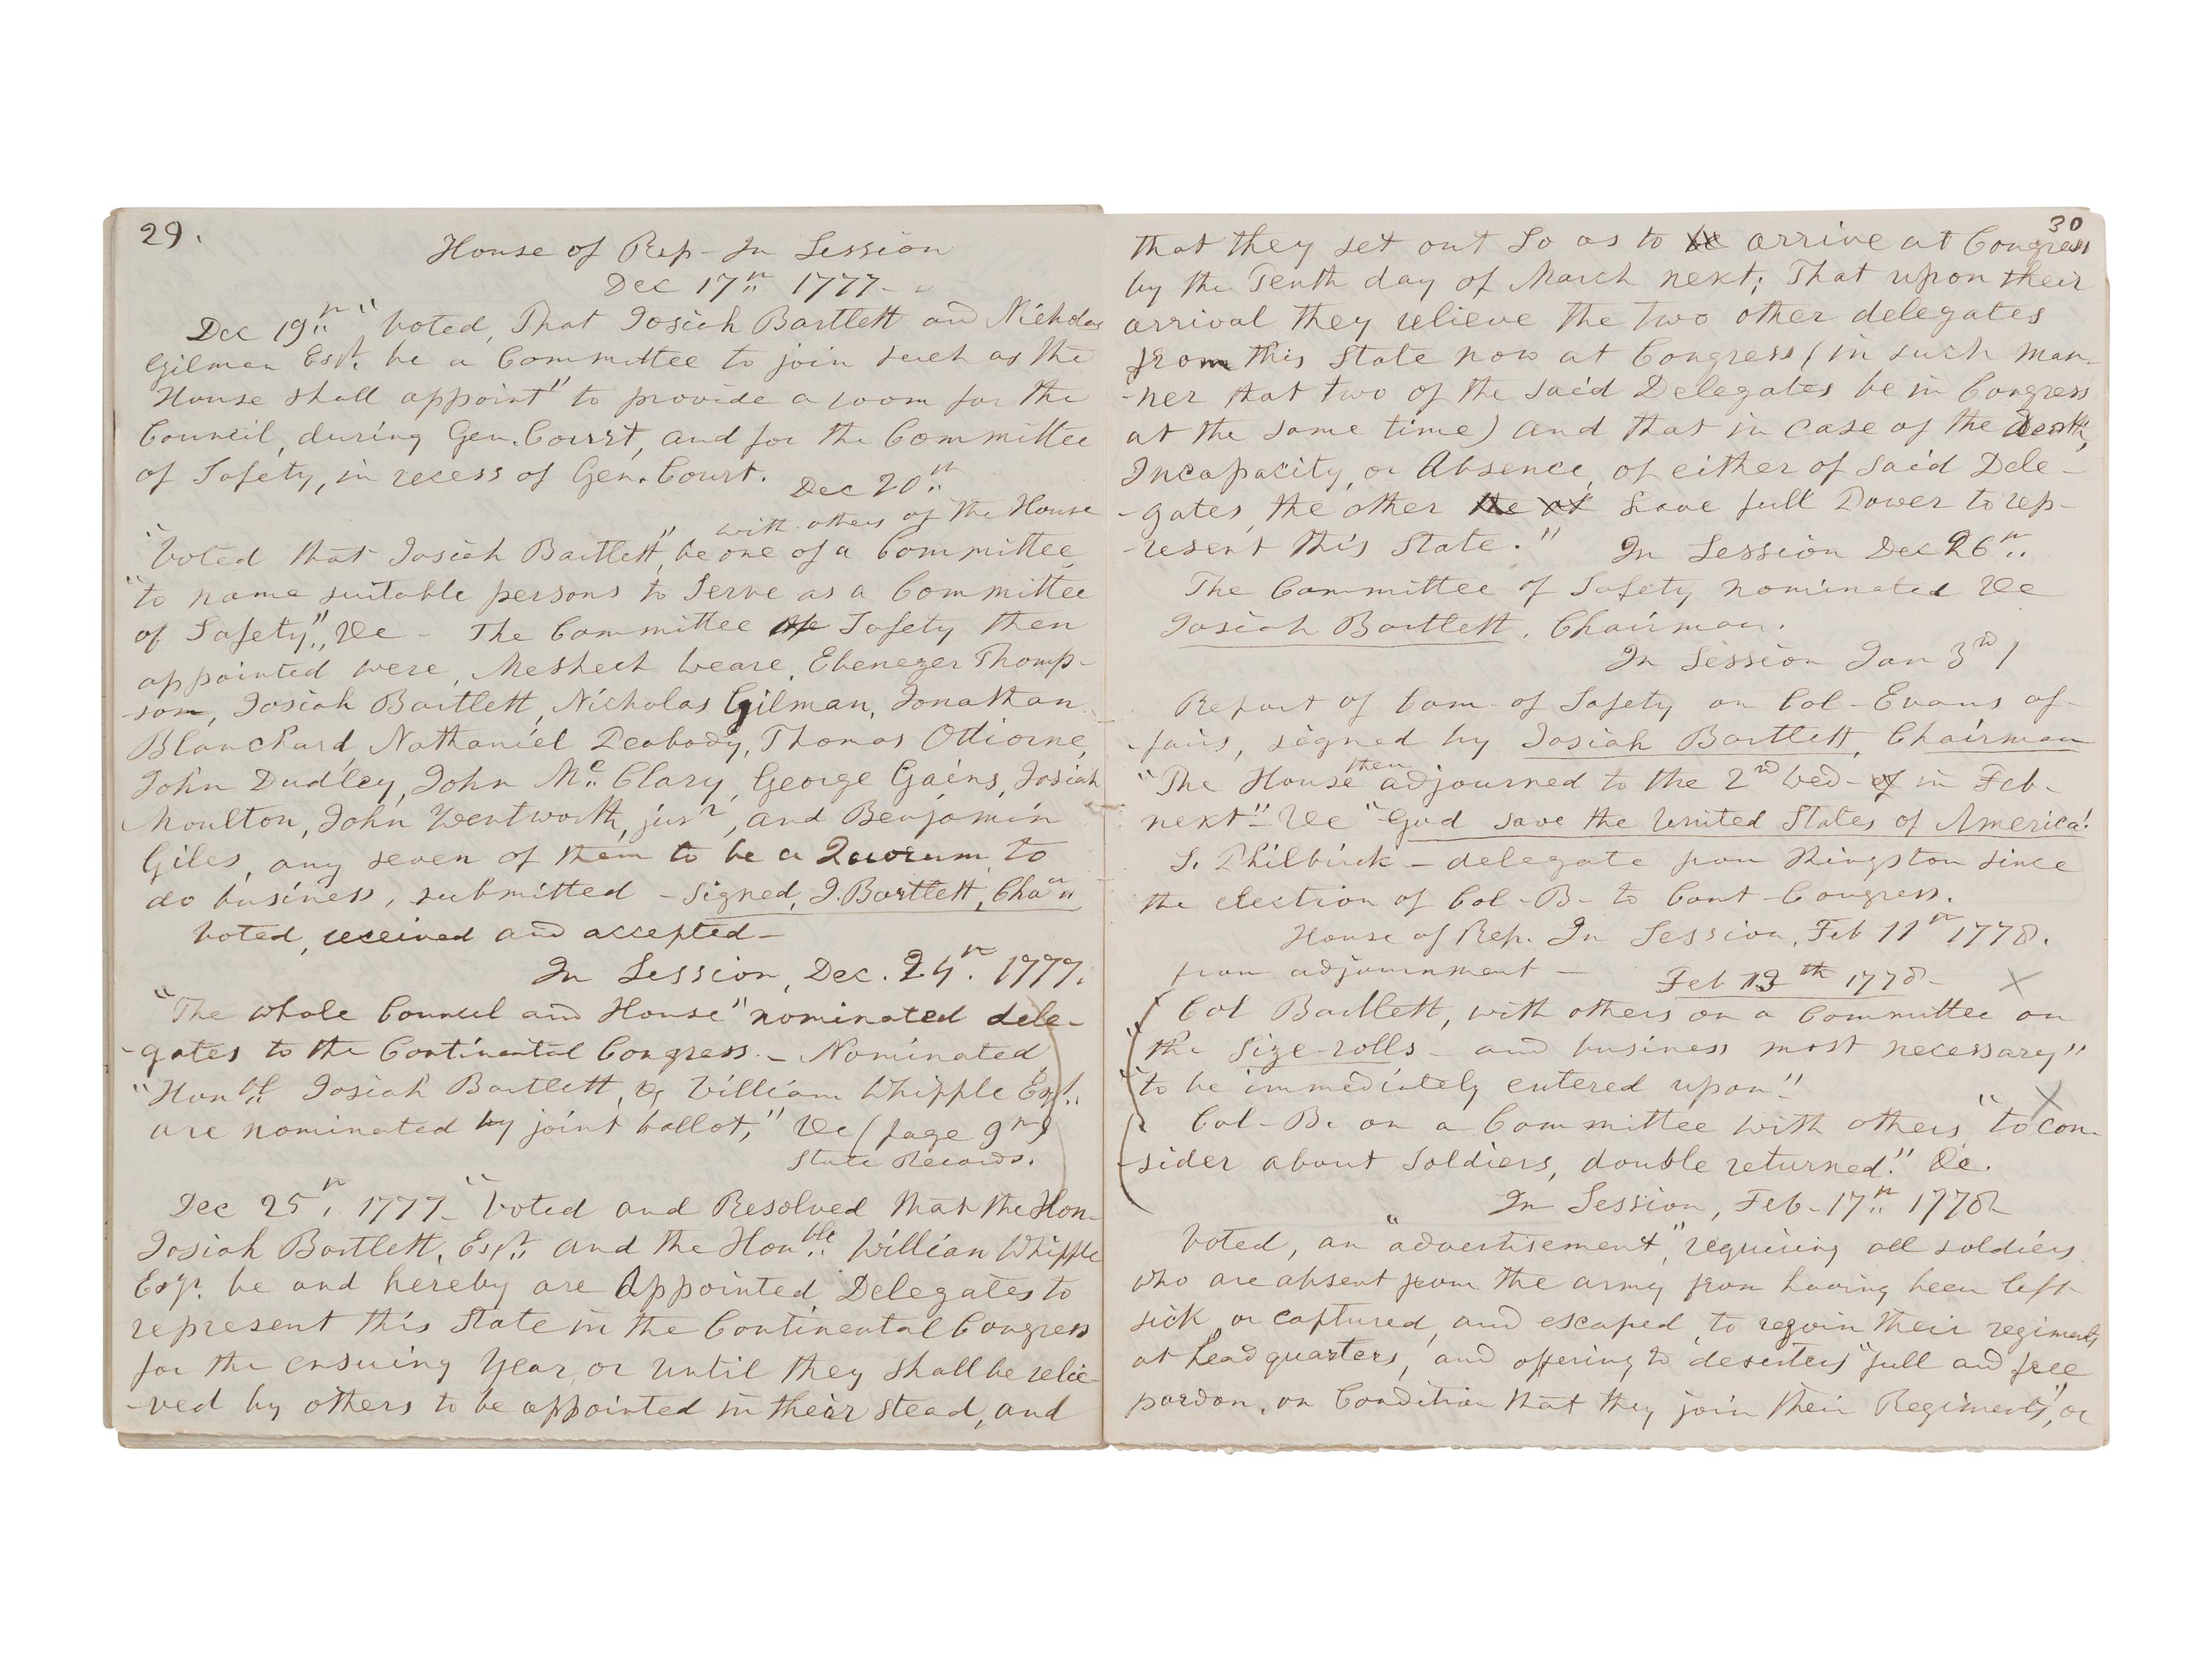 29.
House of Rep - In Session
Dec 17th 1777 -
Dec 19th "Voted, That Josiah Bartlett and Nicholas
Gilman Esqr. be a Committee to join such as the
House shall appoint" to provide a room for the
Council, during Gen. Court, and for the Committee
of Safety, in recess of Gen. Court.
Dec 20th
with others of the House
"Voted that Josiah Bartlett", be one of a Committee
"to name suitable persons to serve as a Committee
of Safety", &c - The Committee of Safety then
appointed were, Meshech Weare, Ebenezer Thomp-
-son, Josiah Bartlett, Nicholas Gilman, Jonathan
Blanchard, Nathaniel Peabody, Thomas Odiorne,
John Dudley, John Mc Clary, George Gains, Josiah
Moulton, John Wentworth, junr, and Benjamin
Giles, any seven of them to be a Quorum to
do business, submitted - Signed, J. Bartlett, Chan
Voted, received and accepted -
In Session, Dec. 24th. 1777.
"The whole Council and House" nominated dele-
-gates to the Continental Congress. - Nominated,
"Honbl Josiah Bartlett, & William Whipple Esqr.
are nominated by joint ballot," &c (page 9th)
State Records.
Dec 25th, 1777 - "Voted and Resolved that the Hon-
Josiah Bartlett, Esqr. and the Honble William Whipple
Esqr. be and hereby are Appointed Delegates to
represent this State in the Continental Congress
for the ensuing Year, or until they shall be relie-
-ved by others to be appointed in their stead, and
30
that they set out So as to be arrive at Congress
by the Tenth day of March next; That upon their
arrival they relieve the two other delegates
from this State now at Congress (in such man-
-ner that two of the said Delegates be in Congress
at the same time) and that in case of the death,
Incapacity, or Absence, of either of said Dele-
-gates, the other have full Power to rep-
-resent this State."
In Session Dec 26th.
The Committee of Safety nominated &c
Josiah Bartlett, Chairman.
In Session Jan 3rd /
Report of Com - of Safety on Col - Evans af-
-fairs, signed by Josiah Bartlett, Chairman
then
"The House adjourned to the 2nd Wed - of in Feb -
next" - &c "God save the United States of America!
S. Philbrick - delegate from Kingston since
the election of Col - B - to Cont - Congress.
House of Rep. In Session, Feb 11th 1778.
from adjournment -
Feb 13th 1778 - X
Col Bartlett, with others on a Committee on
"the size-rolls - and business most necessary"
"to be immediately entered upon" -
X
Col - B. on a Committee with others, "to con-
-sider about soldiers, double returned." &c.
In Session, Feb - 17th 1778
Voted, an "advertisement," requiring all soldiers
who are absent from the army from having been left
sick, or captured, and escaped, to rejoin their regiments
at head quarters, and offering to deserters "full and free
pardon, on Condition that they join their Regiments", or